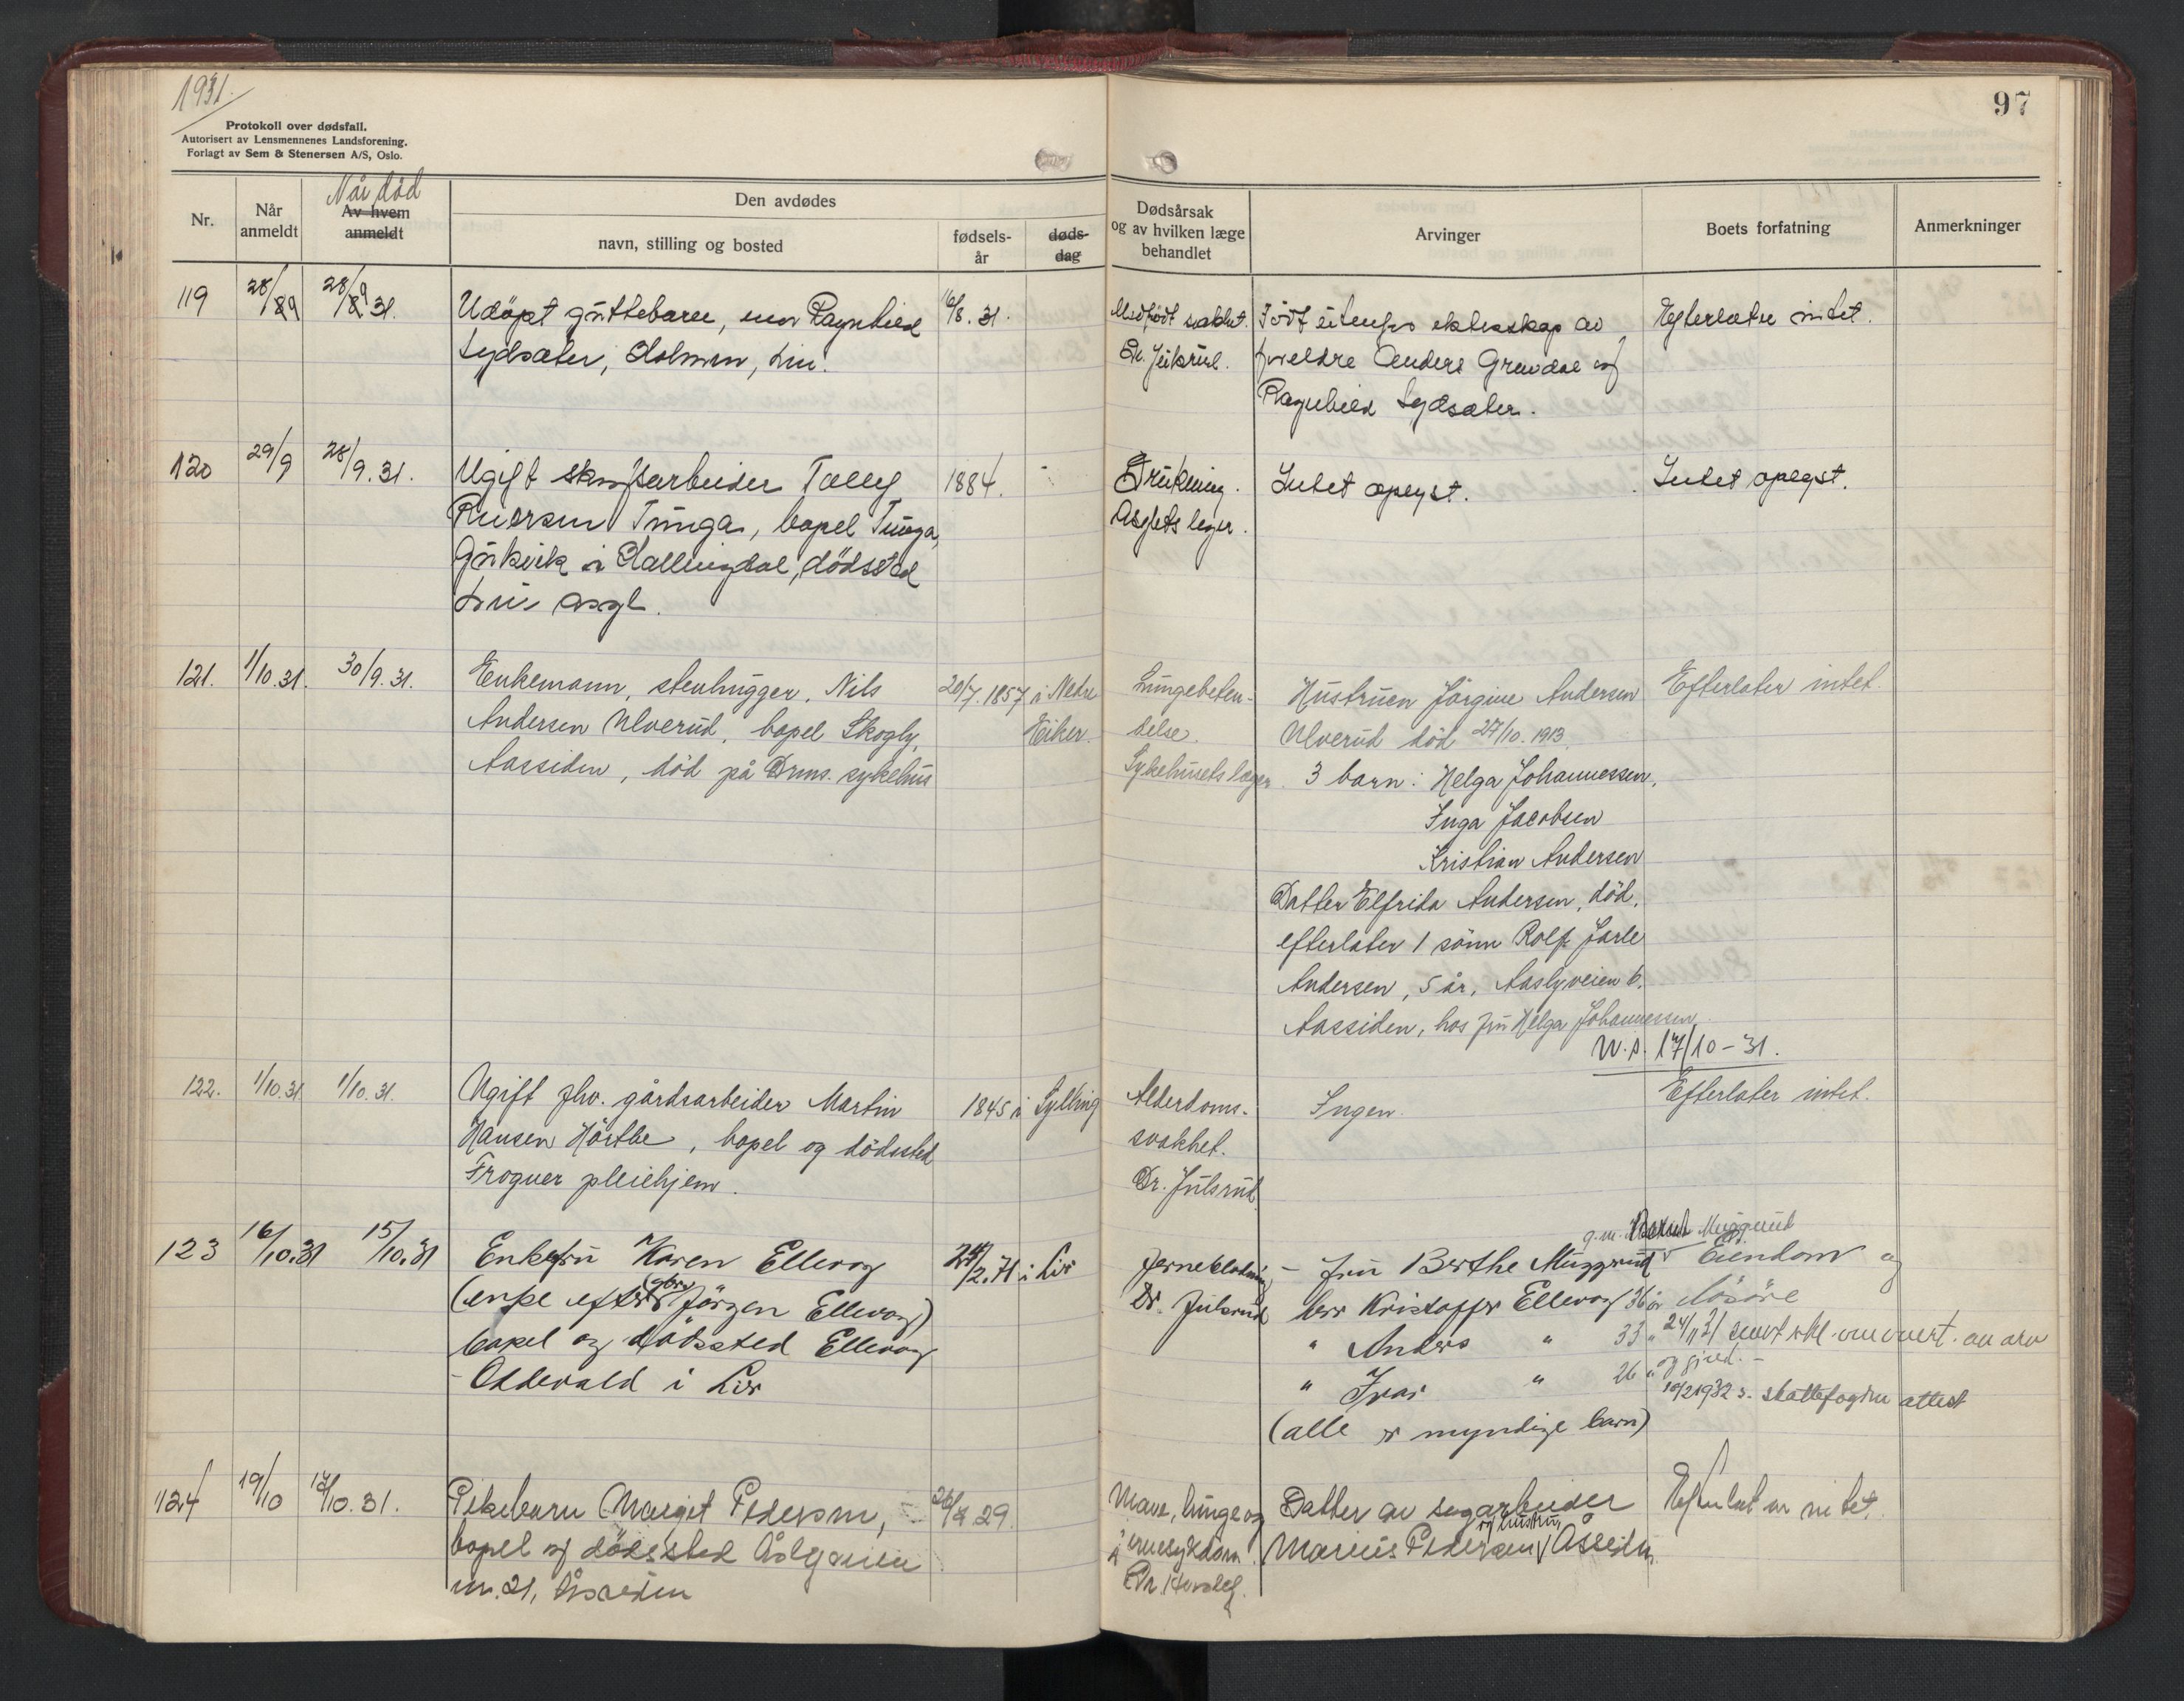 1931.
97
Protokoll over dødsfall.
Autorisert av Lensmennenes Landsforening.
Forlagt av Sem & Stenersen A/S, Oslo.
Nr.
Når anmeldt
Når død
Av hvem anmeldt
Den avdødes
navn, stilling og bosted
fødsels-år
døds-dag
Dødsårsak og av hvilken læge behandlet
Arvinger
Boets forfatning
Anmerkninger
119 28/9 28/9 31. Udöpt guttebarn, mor Ragnhild 16/8. 31. Medfödt svakhet. Född utenfor ekteskap av Efterlater intet.
Lydsæter, Holmen, Lier. Dr. Julsrud. foreldre Anders Gravdal og
Ragnhild Lydsæter.
120 29/9 28/9. 31. Ugift skogsarbeider Tolleif 1884. Drukning. Intet oplyst. Intet oplyst.
Tunga, bopel Tunga, Asylets leger.
i Hallingdal, dödssted
Lier asyl.
121. 1/10. 31. 30/9. 31. Enkemann, stenhugger, Nils 20/7. 1857 i Nedre Lungebeten- Hustruen Jörgine Andersen Efterlater intet.
Andersen Ulverud, bopel Skogly, Eiker. delse. Ulverud död 27/10. 1913.
Aassiden, död på Drms. sykehus Sykehusets læger. 3 barn: Helga Johannessen,
Inga Jacobsen
Kristian Andersen
Datter Elfrida Andersen, död,
efterlater 1 sönn Rolf Jarle
Andersen, 5 år, Aaslyveien 6.
Aassiden, hos fru Helga Johannessen.
U.s. 17/10-31.
122. 1/10. 31 1/10. 31. Ugift fhv. gårdsarbeider Martin 1845 i Sylling Alderdoms- Ingen. Efterlater intet.
Hansen Hörthe, bopel og dödssted svakhet.
Frogner pleiehjem. Dr. Julsrud
g.m. Muggerud
123 16/10.31 15/10.31 Enkefru Karen Ellevog 24/2. 71 i Lier Hjerneblödning – fru Berthe Muggerud Eiendom og
(enke efter gbr. Jörgen Ellevog) Dr. Julsrud herr Kristoffer Ellevog 36 år lösöre
bopel og dödssted Ellevog " Anders " 33 " 24/11 31 sendt skl. av arv
Oddevald i Lier " Ivar " 26 " og gjeld. –
10/2 1932 s. skattefogden attest
(alle er myndige barn)
124 19/10 17/10. 31. Pikebarn Margit Pedersen, 29. Mave, lunge og Datter av sagarbeider Efterlater intet.
bopel og dödssted Marius Pedersen og hustru, Åssiden
nr. 21, Åssiden Dr.